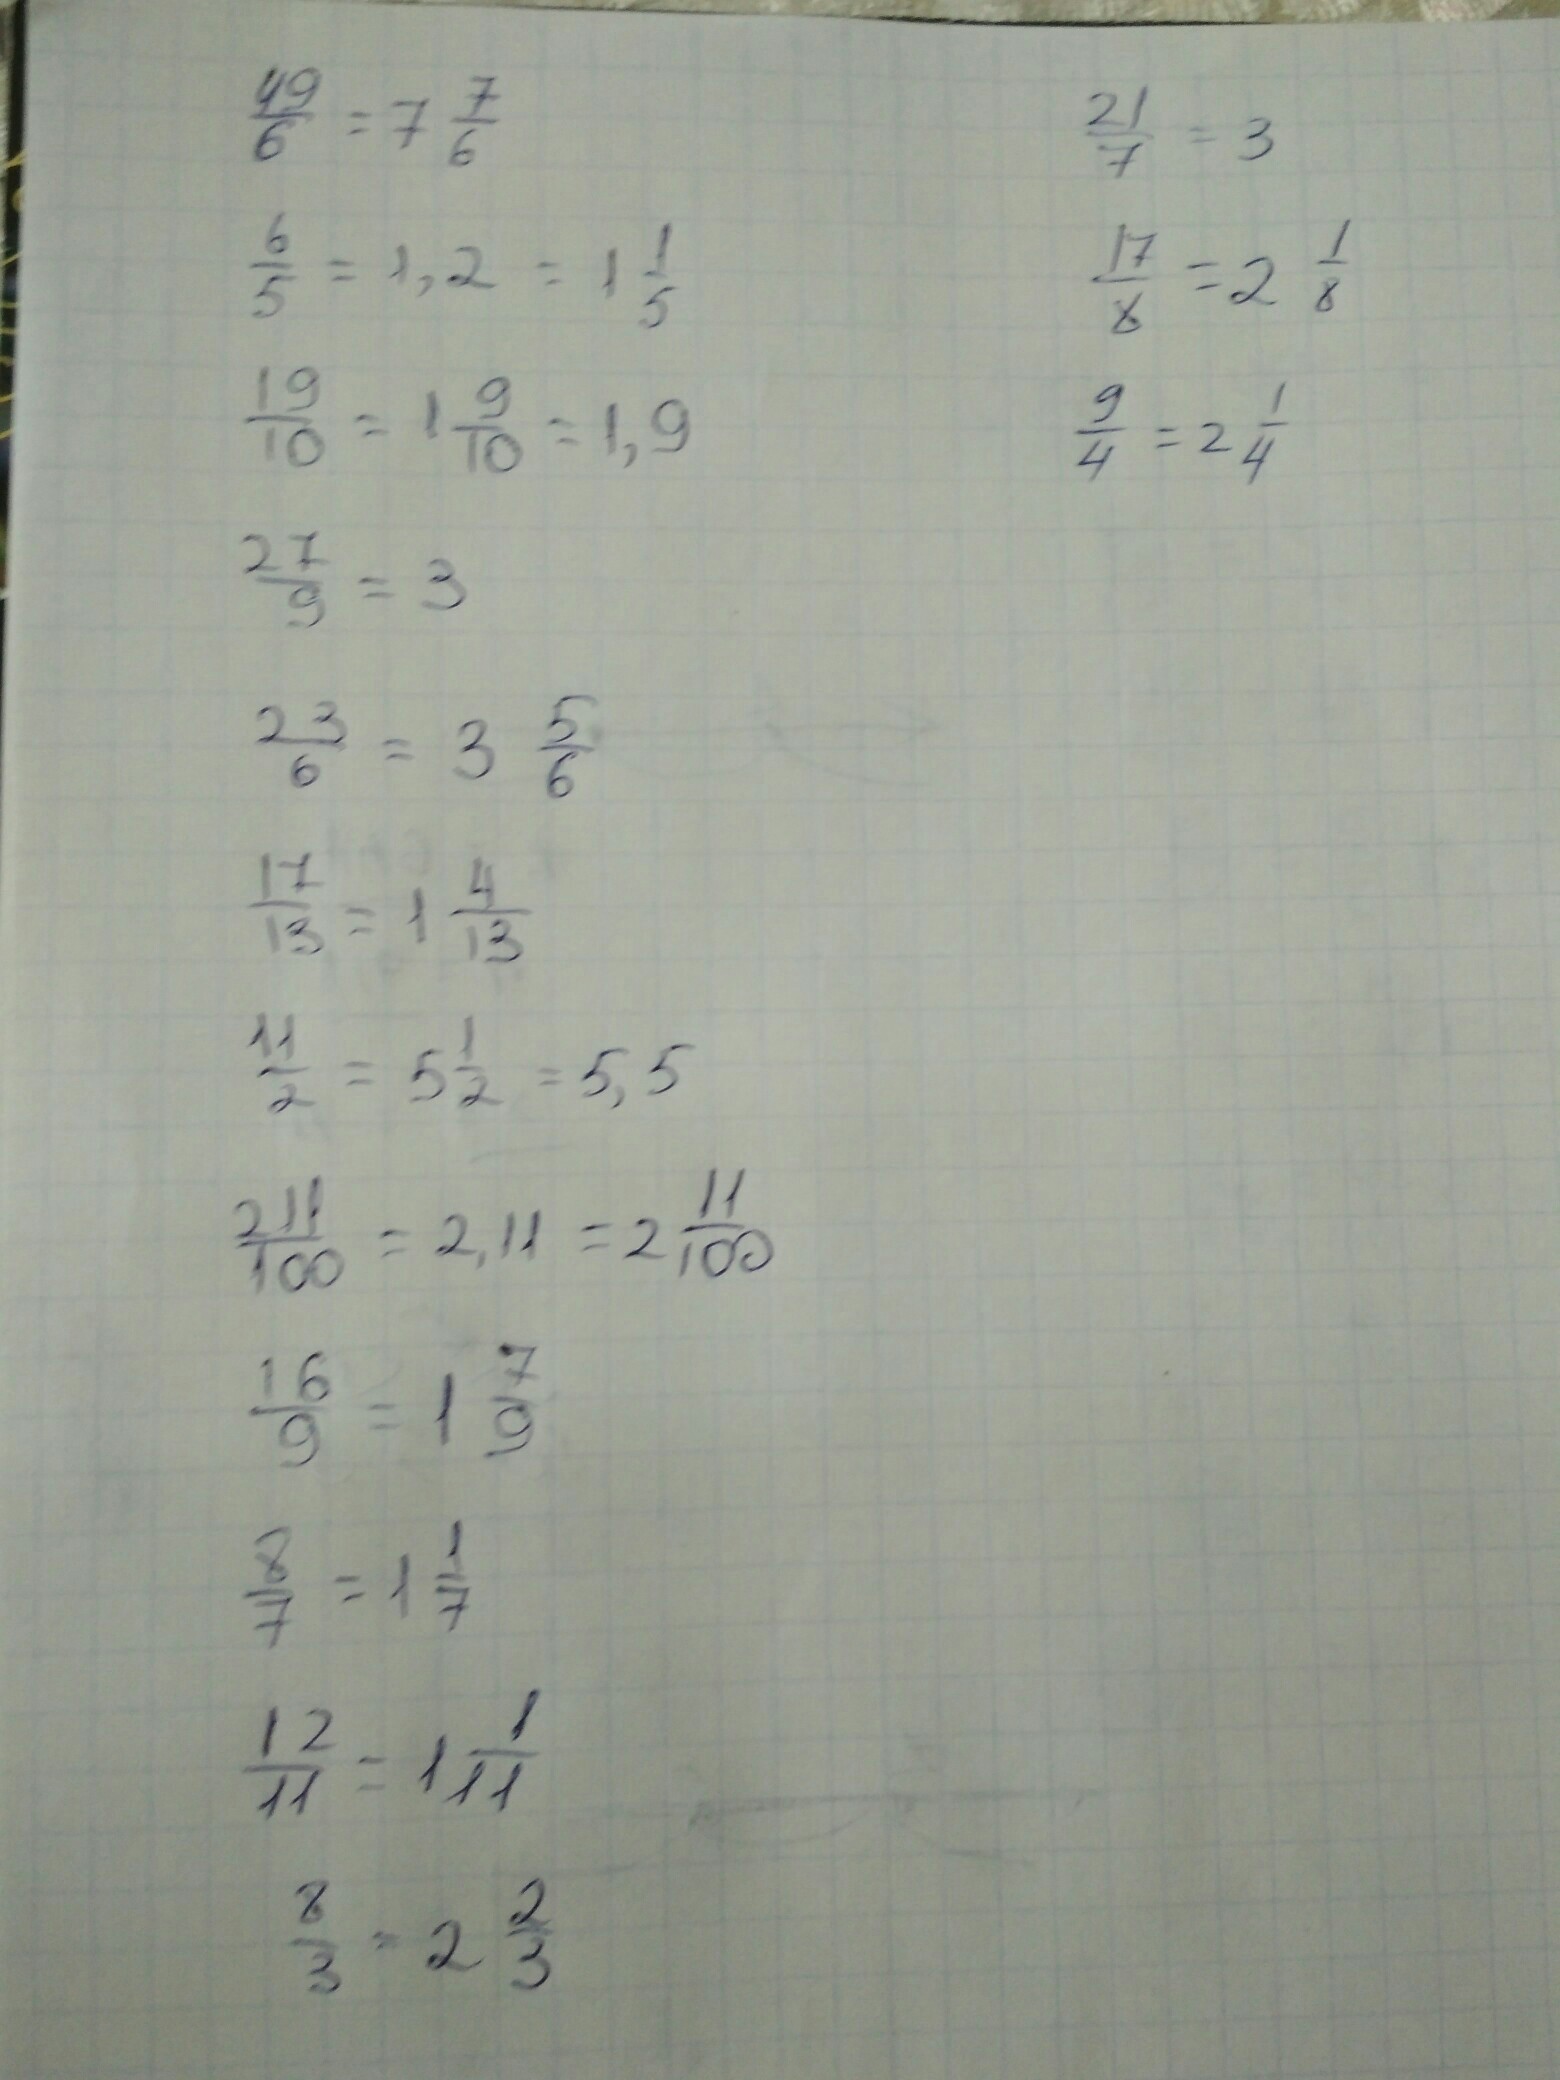 49/6 = 7 7/6
6/5 = 1,2 = 1 1/5
19/10 = 1 9/10 = 1,9
27/9 = 3
23/6 = 3 5/6
17/13 = 1 4/13
11/2 = 5 1/2 = 5,5
211/100 = 2,11 = 2 11/100
16/9 = 1 7/9
8/7 = 1 1/7
12/11 = 1 1/11
8/3 = 2 2/3
21/7 = 3
17/8 = 2 1/8
9/4 = 2 1/4